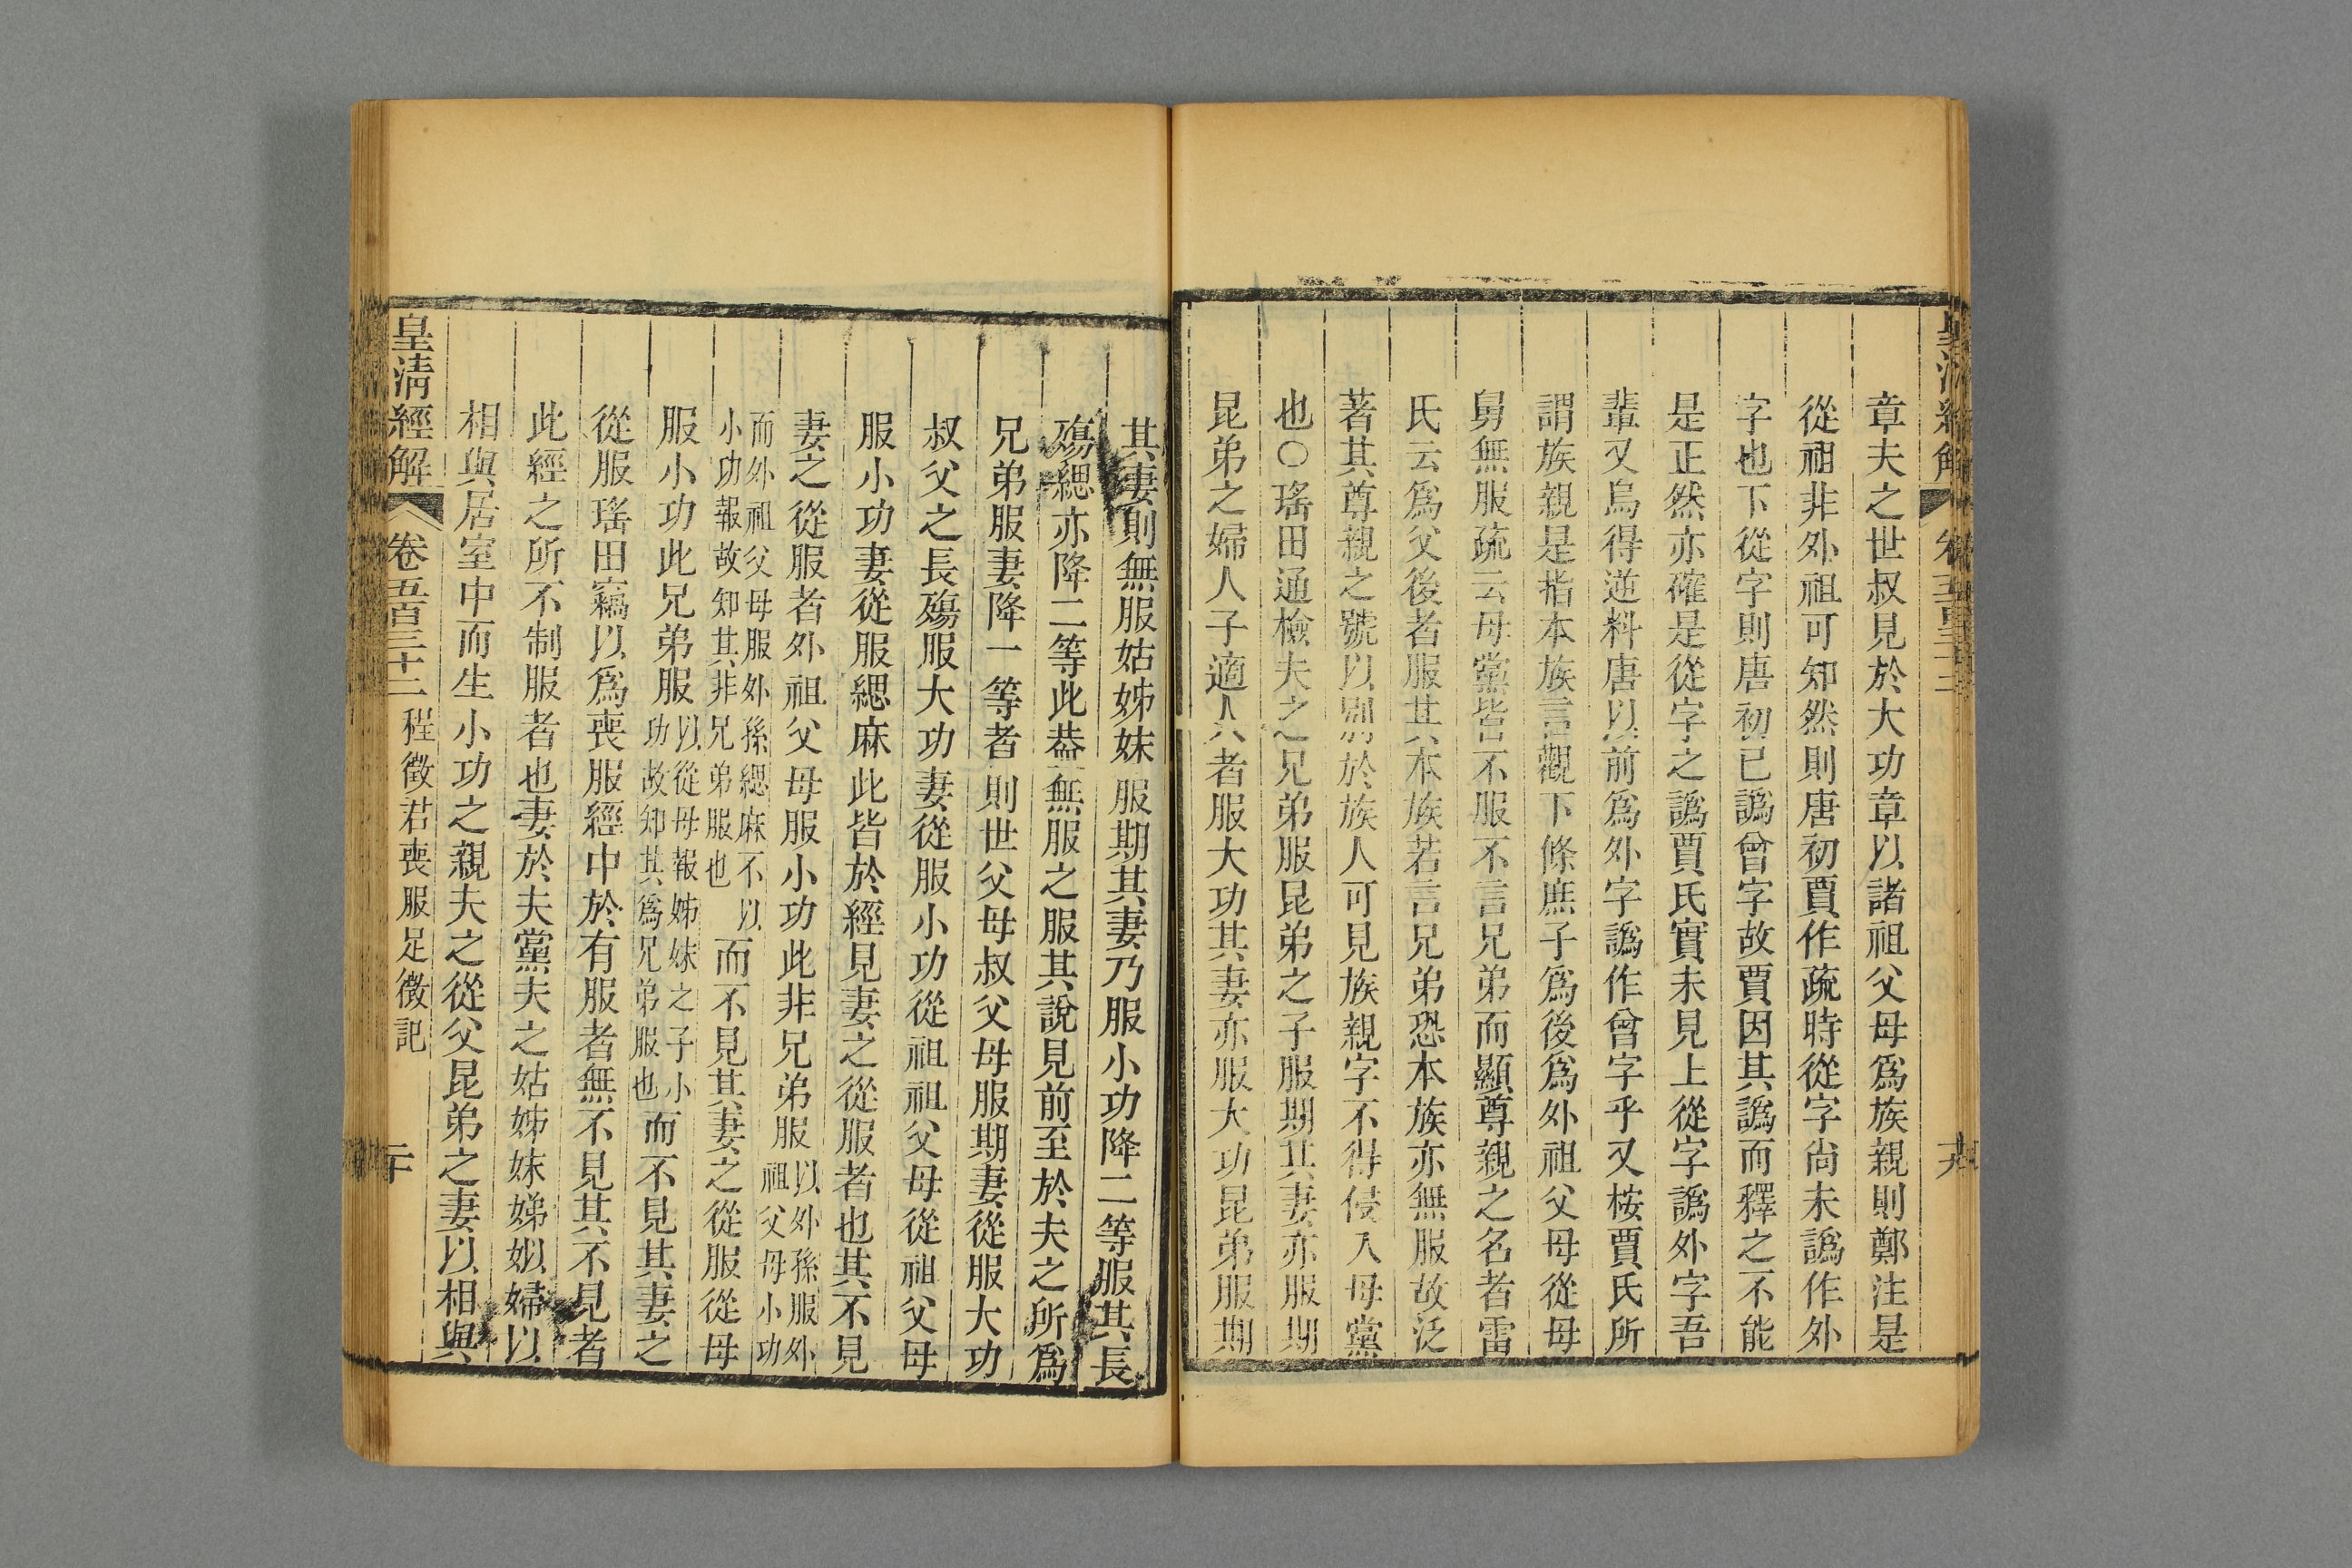 章夫之世叔見於大功章以諸祖父母爲族親則鄭注是
從祖非外祖可知然則唐初賈作疏時從字尙未譌作外
字也下從字則唐初已譌曾字故賈因其譌而釋之不能
是正然亦確是從字之譌賈氏實未見上從字譌外字吾
輩又烏得逆料唐以前爲外字譌作曾字乎又桉賈氏所
謂族親是指本族言觀下條庶子爲後爲外祖父母從母
舅無服疏云母黨皆不服不言兄弟而顯尊親之名者雷
氏云爲父後者服其本族若言兄弟恐本族亦無服故泛
著其尊親之號以別於族人可見族親字不得侵入母黨
也○瑤田通檢夫之兄弟服昆弟之子服期其妻亦服期
昆弟之婦人子適人者服大功其妻亦服大功昆弟服期
其妻則無服姑姊妹服期其妻乃服小功降二等服其長
殤緦亦降二等此葢無服之服其說見前至於夫之所爲
兄弟服妻降一等者則世父母叔父母服期妻從服大功
叔父之長殤服大功妻從服小功從祖祖父母從祖父母
服小功妻從服緦麻此皆於經見妻之從服者也其不見
妻之從服者外祖父母服小功此非兄弟服以外孫服外祖父母小功
而外祖父母服外孫緦麻不以小功報故知其非兄弟服也而不見其妻之從服從母
服小功此兄弟服以從母報姊妹之子小功故知其爲兄弟服也而不見其妻之
從服瑤田竊以爲喪服經中於有服者無不見其不見者
此經之所不制服者也妻於夫黨夫之姑姊妹娣姒婦以
相與居室中而生小功之親夫之從父昆弟之妻以相與
皇清經解 卷五百三十二 程徵君喪服足徵記 二十